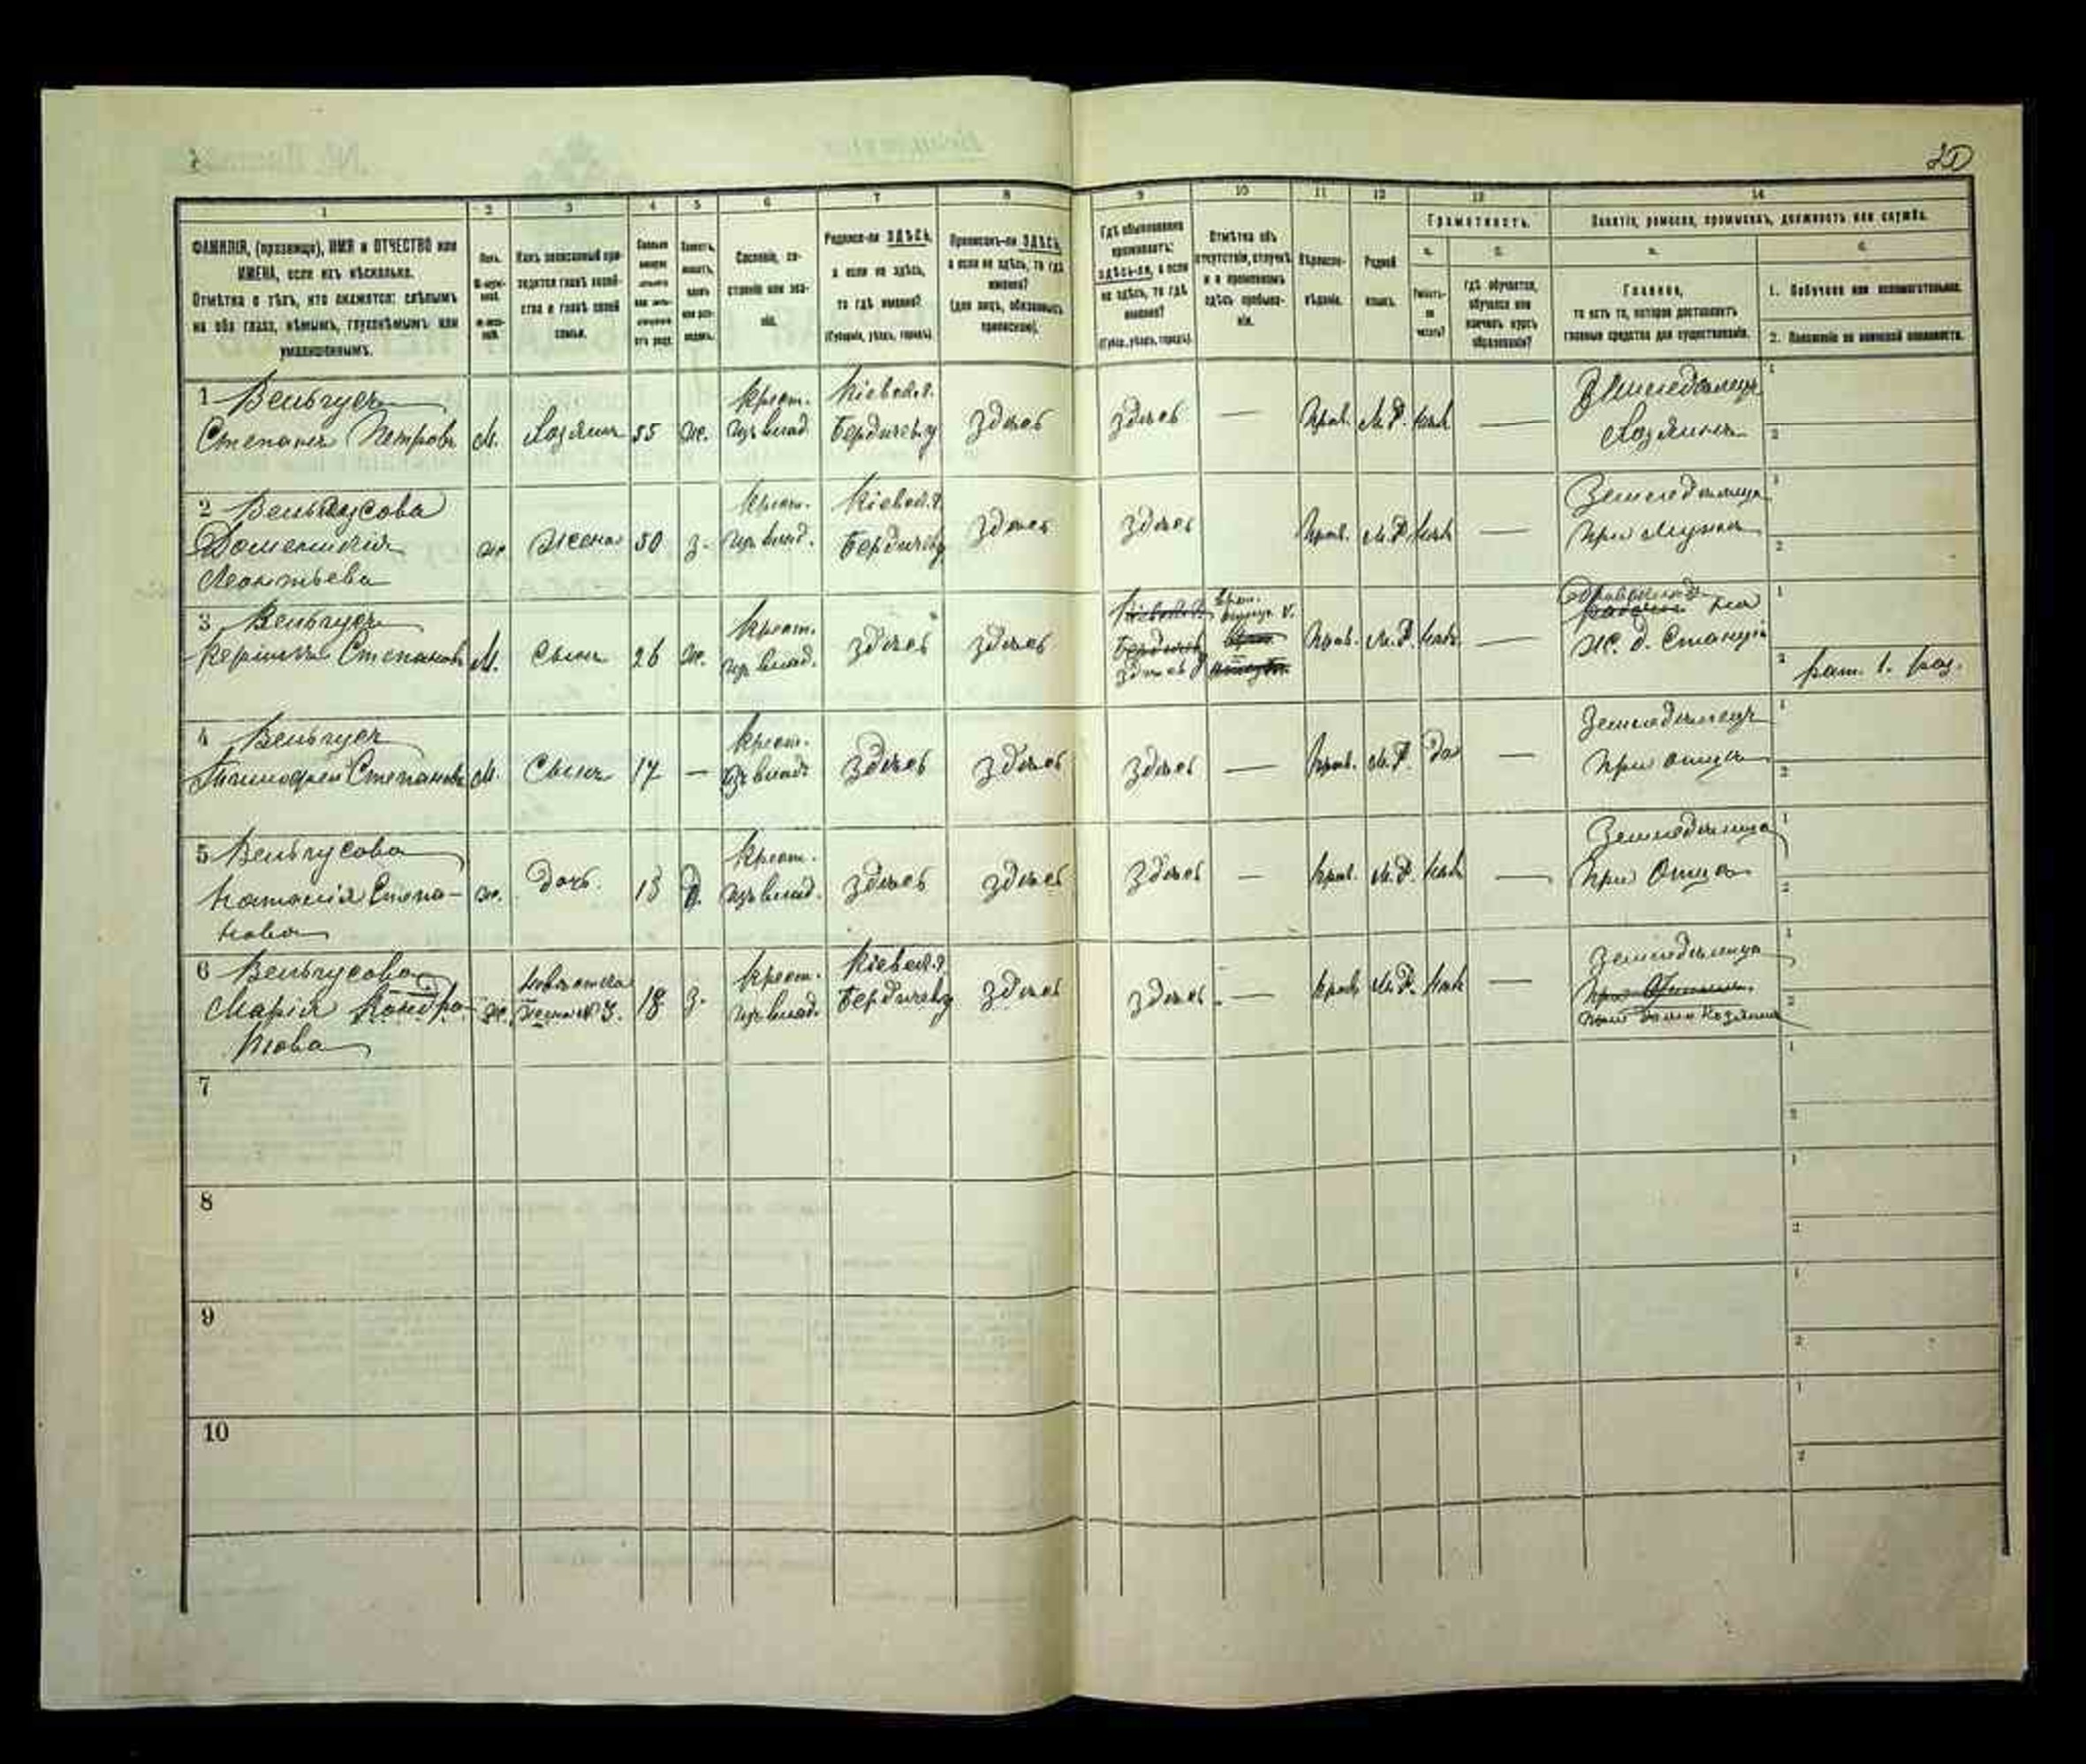 20
1 2 3 4 5 6 7 8 9 10 11 12 13 14
ФАМИЛІЯ, (прозвище), ИМЯ и ОТЧЕСТВО или
ИМЕНА, если ихъ нѣсколько.
Отмѣтка о тѣхъ, кто окажется: слѣпымъ
на оба глаза, нѣмымъ, глухонѣмымъ или
умалишеннымъ.
Полъ.
Какъ записанный при-
ходится главѣ хозяй-
ства и главѣ своей
семьи.
Сословіе, со-
стояніе или зва-
ніе.
Родился-ли ЗДѢСЬ,
а если не здѣсь,
то гдѣ именно?
(Губернія, уѣздъ, городъ).
Приписанъ-ли ЗДѢСЬ,
а если не здѣсь, то гдѣ
именно?
(для лицъ, обязанныхъ
припискою).
Гдѣ обыкновенно
проживаетъ:
здѣсь-ли, а если
не здѣсь, то гдѣ
именно?
(Губер., уѣздъ, городъ).
Отмѣтка объ
отсутствіи, отлучкѣ
и о временномъ
здѣсь пребыва-
ніи.
Вѣроиспо-
вѣданіе.
Родной
языкъ.
Грамотность.
а. б.
Умѣетъ-
ли
читать?
гдѣ обучается,
обучался или
кончилъ курсъ
образованія?
Занятіе, ремесло, промыселъ, должность или служба.
а. б.
Главное,
то есть то, которое доставляетъ
главныя средства для существованія.
1. Побочное или вспомогательное.
2. Положеніе по воинской повинности.
1
Степанъ Петровъ
М. Хозяинъ 55 ж.
крест.
изъ влад.
Кіевск. г.
Бердичев. у
здѣсь здѣсь — Прав. М.Р. нѣтъ —
Земледѣлецъ
Хозяинъ
2
Леонтьева
ж Жена 50 з.
Крест.
изъ влад.
Кіевск. г.
Бердичев. у
здѣсь здѣсь Прав. М.Р. нѣтъ —
Земледѣлица
при мужѣ
3
Степановъ М. Сынъ 26 ж.
крест.
изъ влад.
здѣсь здѣсь
здѣсь
Прав. М.Р. нѣтъ —
на
Ж. д. Станціи
рат. 1. раз.
4
Тимофей Степановъ М. Сынъ 17 —
крест.
изъ влад
здѣсь здѣсь здѣсь — Прав. М.Р. да —
Земледѣлецъ
при отцѣ
5
Наталія Степа-
нова
ж. дочь. 13 д.
крест.
изъ влад.
здѣсь здѣсь здѣсь — Прав. М.Р. нѣтъ —
Земледѣлица
при Отцѣ
6
Марія Кондра-
това
ж. невѣстка
жена №3. 18 з.
крест.
изъ влад.
Кіевск. г
Бердичев. у
здѣсь здѣсь — Прав. М.Р. нѣтъ —
Земледѣлица
7
8
9
10